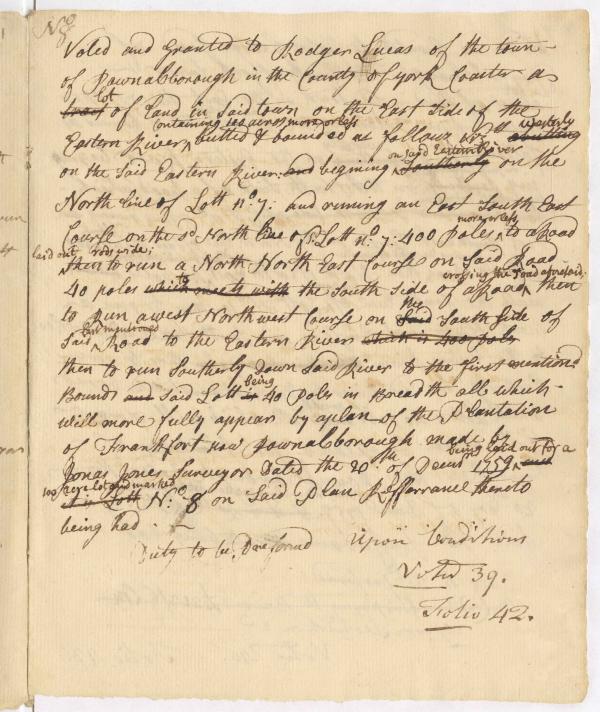 No
5
Voted and Granted to Rodger Lucas of the town
of Pownalborough in the County of york Carter a
lot
tract of land in Said town on the East Side of the
containing 100 acres more or less
Eastern River butted & bounded as follows viz westerly
on the Said Eastern River: and begining Southerly on the
on said Eastern River
North line of Lott no. 7: and runing an East South East
more or less
Course on the sd North line of sd Lott no. 7: 400 poles to a Road
laid out rods wide;
then to run a North North East Course on Said Road
crossing the road aforesaid;
40 poles which meets with to the South Side of a Road then
the
to run a west Northwest Course on Said South Side of
last mentioned
Said Road to the Eastern River which is 400 poles
then to run Southerly Down Said River to the first mentiond
being
Bounds and Said Lott is 40 Poles in Breadth all which
will more fully appear by a plan of the Plantation
of Frankfort now Pownalborough made by
being laid out for a
Jonas Jones Surveyor Dated the 20th of Decem 1759 and
100 acre lot and marked
it is Lott No. 8 on Said Plan Refferrance thereto
being had.
Duty to be Performd Upon Conditions
Voted 39.
Folio 42.